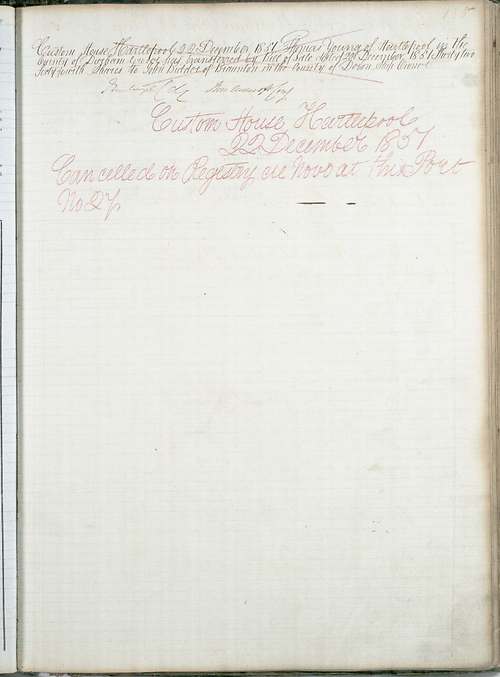 Custom House Hartlepool 22 December 1851 Thomas Young of Hartlepool in the
County of Durham has transferred by Bill of Sale dated December 1851 Thirty two
Sixty fourth Shares to John of Braunton in the County of Devon Ship Owner
Custom House Hartlepool
22 December 1851
Cancelled on Registry de Novo at this Port
No 27